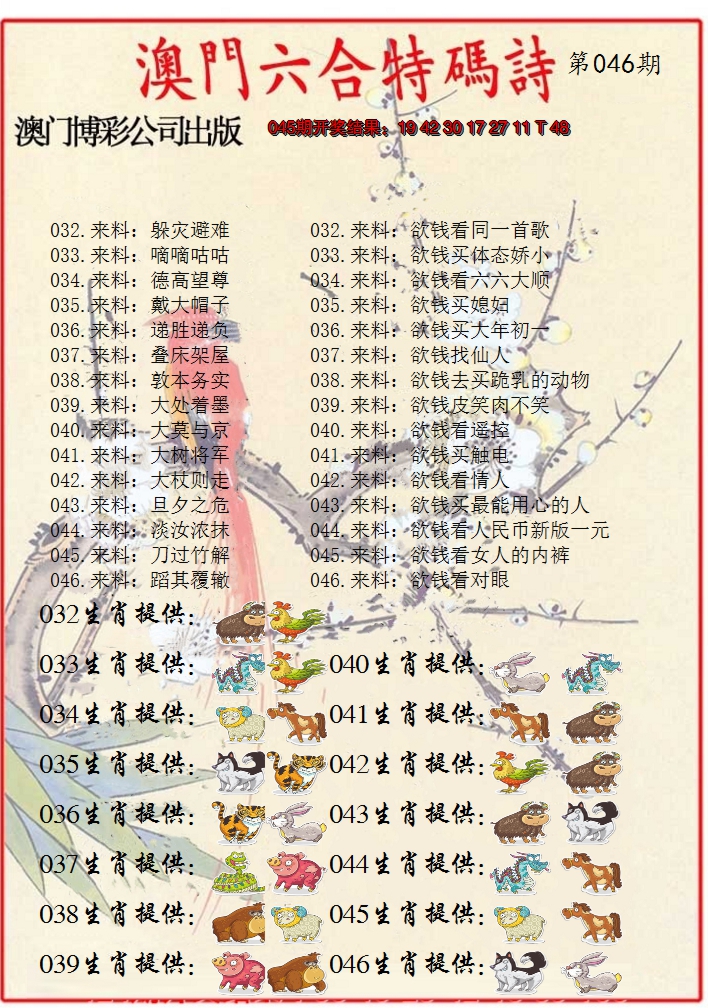 澳門六合特碼詩 第046期
澳门博彩公司出版 045期开奖结果：19 42 30 17 27 11 T 48
032.来料：躲灾避难 032.来料：欲钱看同一首歌
033.来料：嘀嘀咕咕 033.来料：欲钱买体态娇小
034.来料：德高望尊 034.来料：欲钱看六六大顺
035.来料：戴大帽子 035.来料：欲钱买媳妇
036.来料：递胜递负 036.来料：欲钱买大年初一
037.来料：叠床架屋 037.来料：欲钱找仙人
038.来料：敦本务实 038.来料：欲钱去买跪乳的动物
039.来料：大处着墨 039.来料：欲钱皮笑肉不笑
040.来料：大莫与京 040.来料：欲钱看遥控
041.来料：大树将军 041.来料：欲钱买触电
042.来料：大杖则走 042.来料：欲钱看情人
043.来料：旦夕之危 043.来料：欲钱买最能用心的人
044.来料：淡汝浓抹 044.来料：欲钱看人民币新版一元
045.来料：刀过竹解 045.来料：欲钱看女人的内裤
046.来料：蹈其覆辙 046.来料：欲钱看对眼
032生肖提供：
033生肖提供： 040生肖提供：
034生肖提供： 041生肖提供：
035生肖提供： 042生肖提供：
036生肖提供： 043生肖提供：
037生肖提供： 044生肖提供：
038生肖提供： 045生肖提供：
039生肖提供： 046生肖提供：